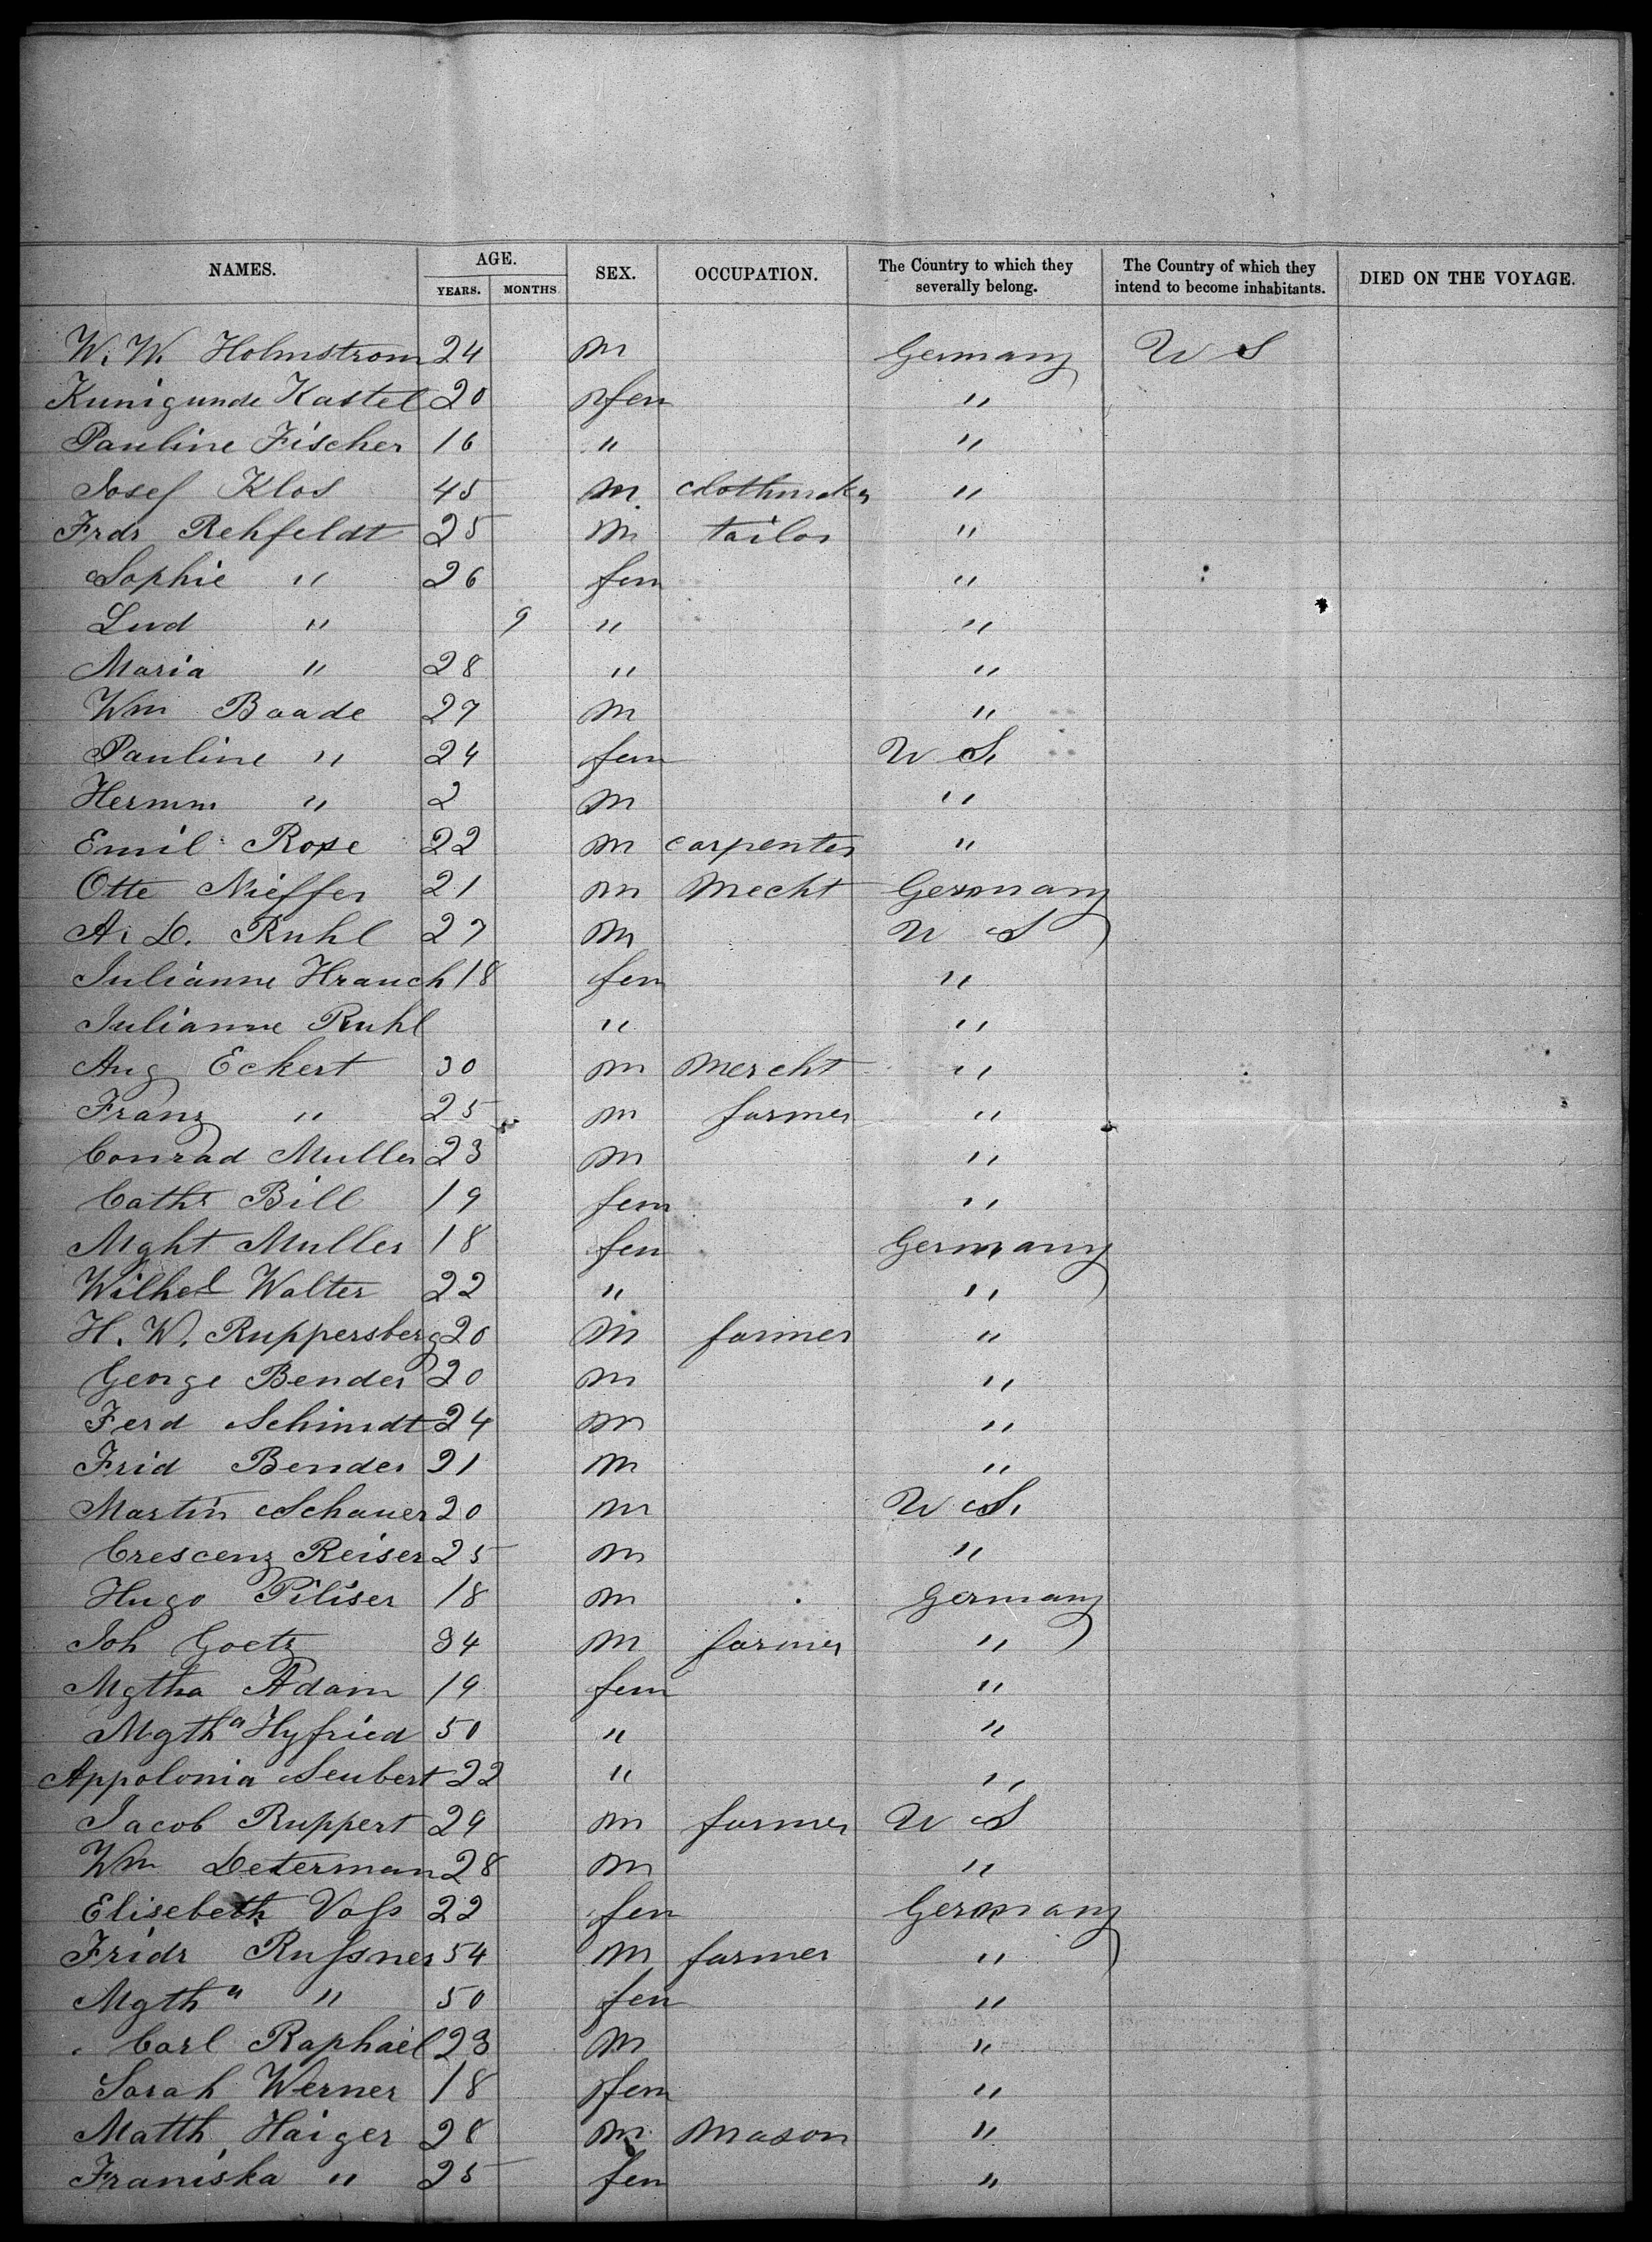 NAMES. AGE. SEX. OCCUPATION. The Country to which they severally belong. The Country of which they intend to become inhabitants. DIED ON THE VOYAGE.
YEARS. MONTHS
W. W. Holmstrom 24 m Germany U S
Kunigunde Kastel 20 fem "
Pauline Fischer 16 " "
Josef Klos 45 m clothmaker "
Frdr Rehfeldt 25 m tailor "
Sophie " 26 fem "
Lud " 9 " "
Maria " 28 " "
Wm Baade 27 m "
Pauline " 24 fem U S.
Hermm " 2 m "
Emil Rose 22 m carpenter "
Otte Nieffer 21 m Mecht Germany
A. D. Ruhl 27 m U S
Julianne Hrauch 18 fem "
Julianne Ruhl " "
Aug Eckert 30 m Mercht "
Franz " 25 m farmer "
Conrad Muller 23 m "
Cathr Bill 19 fem "
Mght Muller 18 fem Germany
Wilhel Walter 22 " "
H. W. Ruppersberg 20 m farmer "
George Bender 20 m "
Ferd Schimdt 24 m "
Frid Bender 21 m "
Martin Schauer 20 m U S.
Crescenz Reiser 25 m "
Hugo Piliser 18 m Germany
Joh Goetz 34 m farmer "
Mgtha Adam 19 fem "
Mgtha Hyfried 50 " "
Appolonia Seubert 22 " "
Jacob Ruppert 29 m farmer U S
Wm Determan 28 m "
Elisebeth Voſs 22 fem Germany
Fridr Ruſsner 54 m farmer "
Mgtha " 50 fem "
Carl Raphael 23 m "
Sarah Werner 18 fem "
Matth Haiger 28 m Mason "
Franiska " 25 fem "